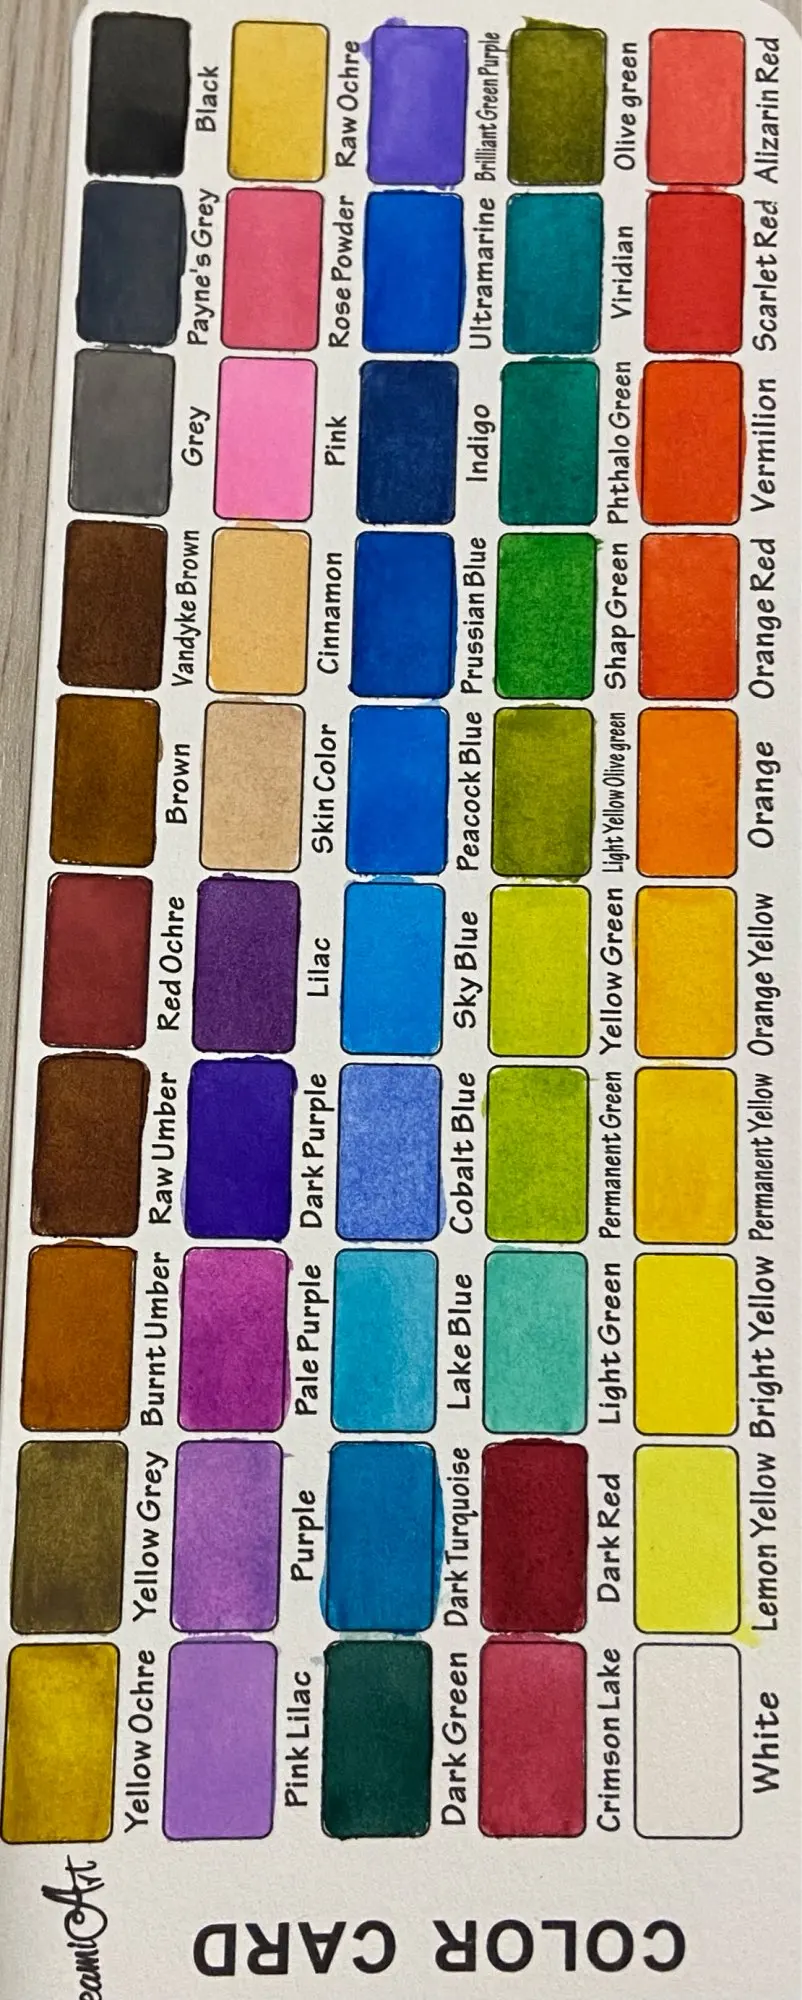 eami Art
COLOR CARD
Yellow Ochre Yellow Grey Burnt Umber Raw Umber Red Ochre Brown Vandyke Brown Grey Payne's Grey Black
Pink Lilac Purple Pale Purple Dark Purple Lilac Skin Color Cinnamon Pink Rose Powder Raw Ochre
Dark Green Dark Turquoise Lake Blue Cobalt Blue Sky Blue Peacock Blue Prussian Blue Indigo Ultramarine Brilliant Green Purple
Crimson Lake Dark Red Light Green Permanent Green Yellow Green Light Yellow Olive green Shap Green Phthalo Green Viridian Olive green
White Lemon Yellow Bright Yellow Permanent Yellow Orange Yellow Orange Orange Red Vermilion Scarlet Red Alizarin Red